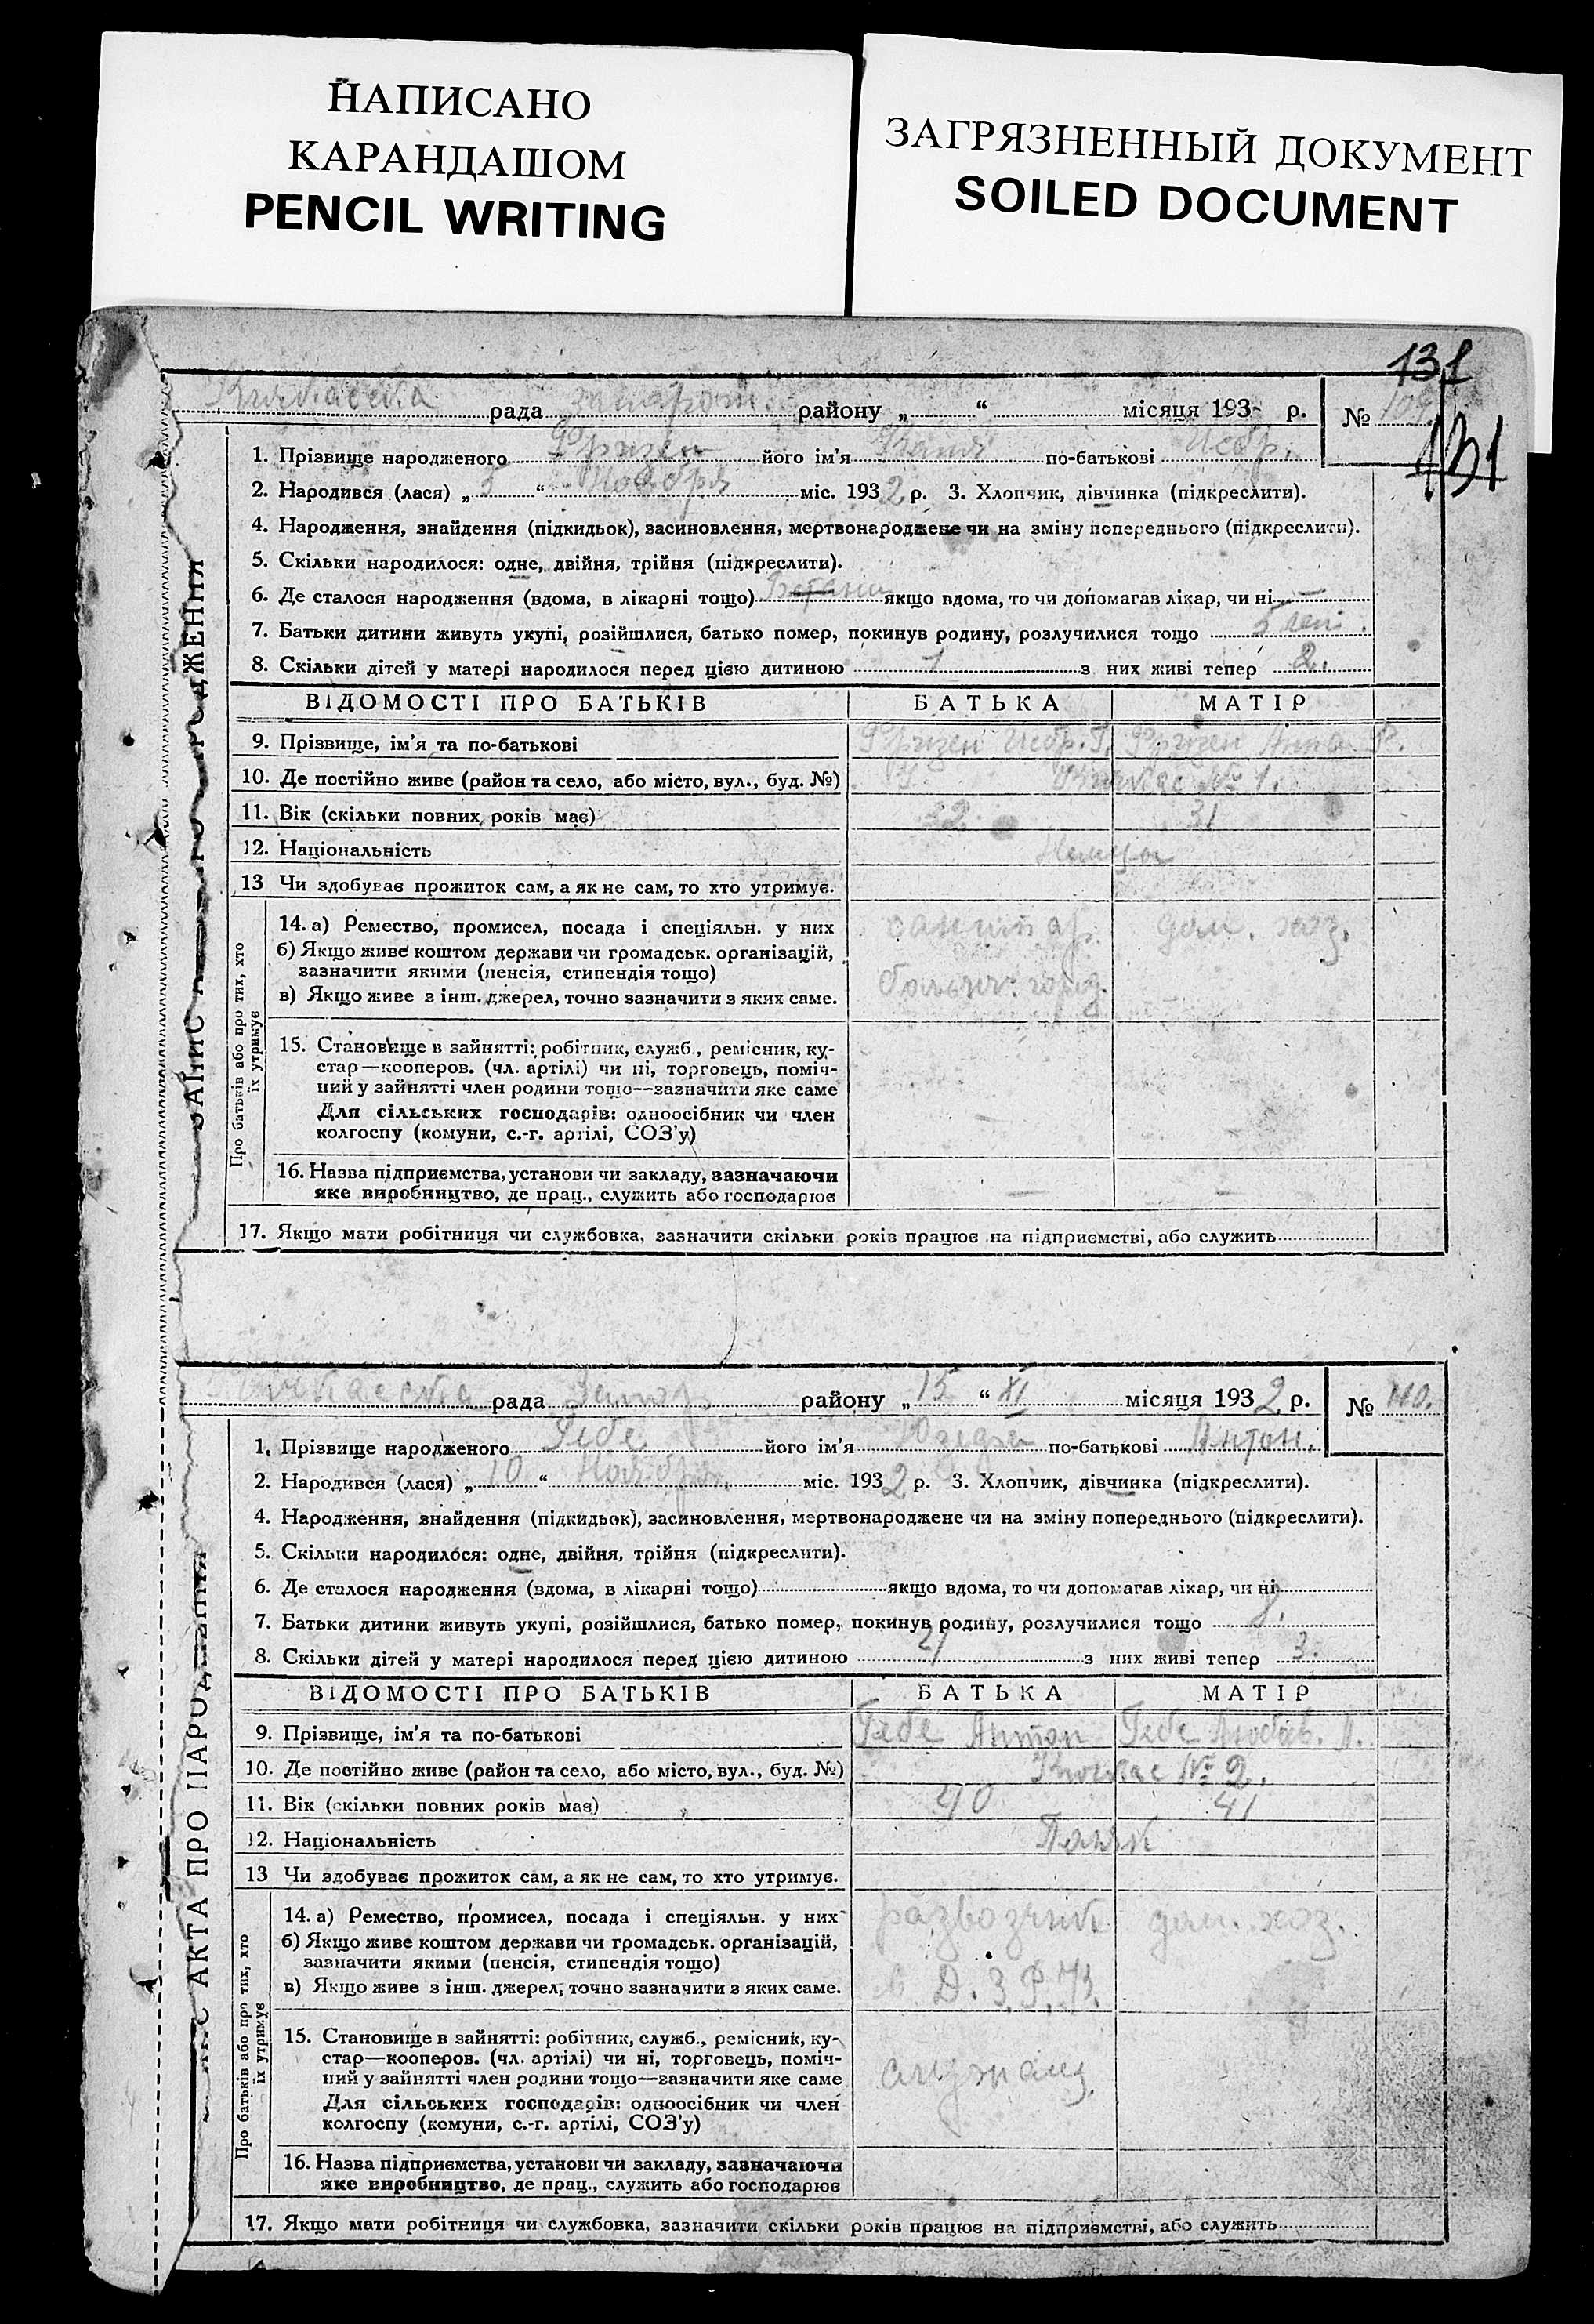 НАПИСАНО
КАРАНДАШОМ
PENCIL WRITING
ЗАГРЯЗНЕННЫЙ ДОКУМЕНТ
SOILED DOCUMENT
131
рада района „ “ місяця 193 р. № 109
131
1. Прізвище народженого Фризен його ім'я Катя по-батькові
2. Народився (лася) „5“ Ноября міс. 1932 р. 3. Хлопчик, дівчинка (підкреслити).
4. Народження, знайдення (підкидьок), засиновлення, мертвонароджене чи на зміну попереднього (підкреслити).
5. Скільки народилося: одне, двійня, трійня (підкреслити).
6. Де сталося народження (вдома, в лікарні тощо) якщо вдома, то чи допомагав лікар, чи ні
7. Батьки дитини живуть укупі, розійшлися, батько помер, покинув родину, розлучилися тощо
8. Скільки дітей у матері народилося перед цією дитиною 1 з них живі тепер 2.
ВІДОМОСТІ ПРО БАТЬКІВ БАТЬКА МАТІР
9. Прізвище, ім'я та по-батькові Фризен Фризен Анна
10. Де постійно живе (район та село, або місто, вул., буд. №) Кичкас № 1.
11. Вік (скільки повних років має) 32 31
12. Національність Немцы
13 Чи здобуває прожиток сам, а як не сам, то хто утримує.
Про батьків або про тих, хто
їх утримує
14. а) Ремество, промисел, посада і спеціяльн. у них санитар. дом. хоз.
б) Якщо живе коштом держави чи громадськ. організацій,
зазначити якими (пенсія, стипендія тощо)
в) Якщо живе з інш. джерел, точно зазначити з яких саме.
15. Становище в зайнятті: робітник, служб., ремісник, ку-
стар—кооперов. (чл. артілі) чи ні, торговець, поміч-
ний у зайнятті член родини тощо—зазначити яке саме
Для сільських господарів: одноосібник чи член
колгоспу (комуни, с.-г. артілі, СОЗ'у)
16. Назва підприємства, установи чи закладу, зазначаючи
яке виробництво, де прац., служить або господарює
17. Якщо мати робітниця чи службовка, зазначити скільки років працює на підприємстві, або служить
рада Запор району „15“ XI місяця 1932 р. № 110.
1. Прізвище народженого Глебе його ім'я по-батькові Антон.
2. Народився (лася) „10“ Ноября міс. 1932 р. 3. Хлопчик, дівчинка (підкреслити).
4. Народження, знайдення (підкидьок), засиновлення, мертвонароджене чи на зміну попереднього (підкреслити).
5. Скільки народилося: одне, двійня, трійня (підкреслити).
6. Де сталося народження (вдома, в лікарні тощо) якщо вдома, то чи допомагав лікар, чи ні
7. Батьки дитини живуть укупі, розійшлися, батько помер, покинув родину, розлучилися тощо у.
8. Скільки дітей у матері народилося перед цією дитиною 4 з них живі тепер 3.
ВІДОМОСТІ ПРО БАТЬКІВ БАТЬКА МАТІР
9. Прізвище, ім'я та по-батькові Глебе Антон Глебе Любов. А.
10. Де постійно живе (район та село, або місто, вул., буд. №) Кичкас № 2.
11. Вік (скільки повних років має) 40 41
12. Національність Поляк
13 Чи здобуває прожиток сам, а як не сам, то хто утримує.
АКТА ПРО НАРОДЖЕННЯ
Про батьків або про тих, хто
їх утримує
14. а) Ремество, промисел, посада і спеціяльн. у них развозчик дом. хоз.
б) Якщо живе коштом держави чи громадськ. організацій,
зазначити якими (пенсія, стипендія тощо)
в) Якщо живе з інш. джерел, точно зазначити з яких саме. Д.З.Р.К.
15. Становище в зайнятті: робітник, служб., ремісник, ку-
стар—кооперов. (чл. артілі) чи ні, торговець, поміч-
ний у зайнятті член родини тощо—зазначити яке саме служащ.
Для сільських господарів: одноосібник чи член
колгоспу (комуни, с.-г. артілі, СОЗ'у)
16. Назва підприємства, установи чи закладу, зазначаючи
яке виробництво, де прац., служить або господарює
17. Якщо мати робітниця чи службовка, зазначити скільки років працює на підприємстві, або служить